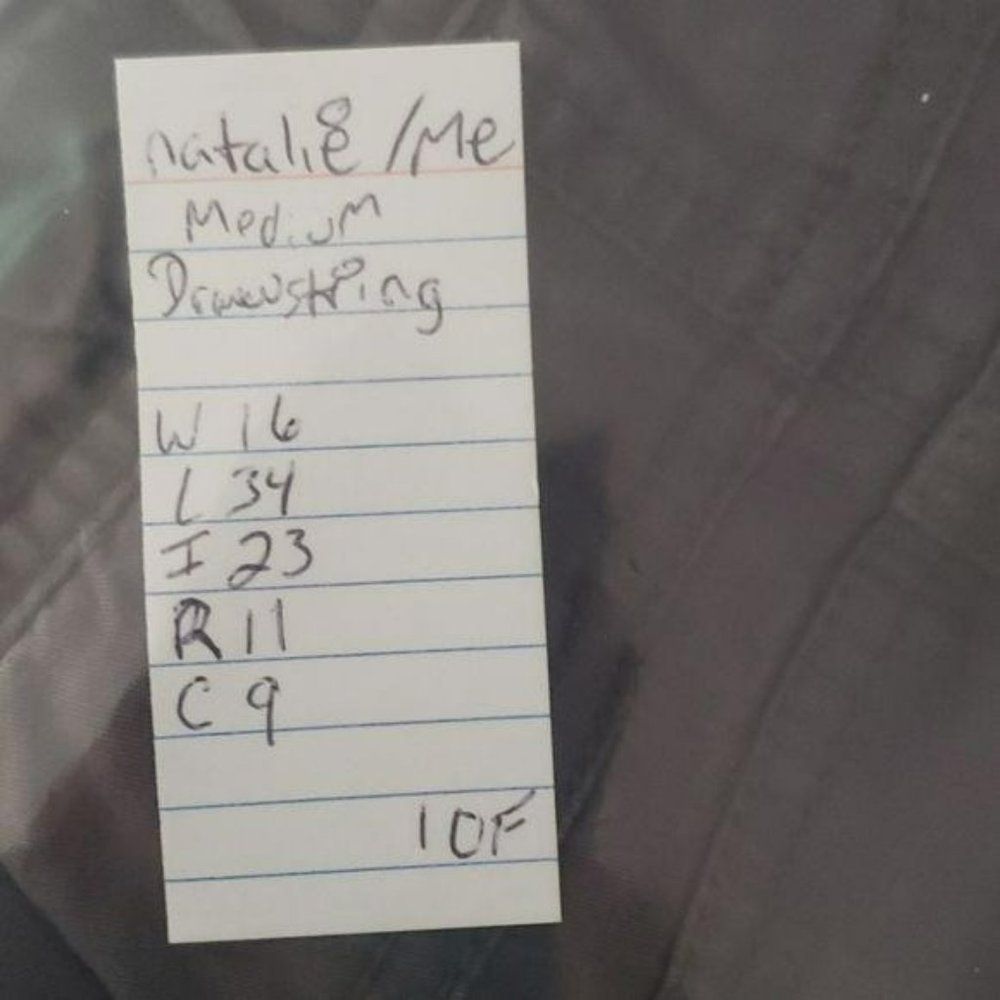 natalie /Me
Medium
Drawstring
W 16
L 34
I 23
R 11
C 9
10F